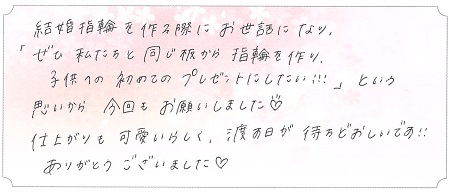 結婚指輪を作る際にお世話になり、
「ぜひ私たちと同じ板から指輪を作り、
子供への初めてのプレゼントにしたい!!!」という
思いから今回もお願いしました♡
仕上がりも可愛いらしく、渡す日が待ちどおしいです!!
ありがとうございました♡